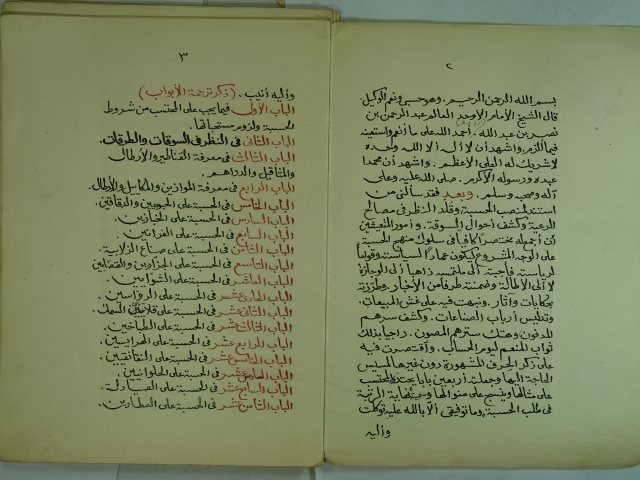 ٢
بسم الله الرحمن الرحيم . وهو حسبي ونعم الوكيل .
قال الشيخ الإمام الاوحد العالم عبد الرحمن بن
نصر بن عبد الله . أحمد الله على ما أنعم واستعينه
فيما ألزم . واشهد أن لا اله الا الله وحده
لا شريك له العلي الاعظم . واشهد أن محمدا
عبده ورسوله الاكرم . صلى الله عليه وعلى
آله وصحبه وسلم . وبعد فقد سألني من
استند لمنصب الحسبة وقلد النظر في مصالح
الرعية وكشف أحوال السوقة . وأمور المتعيشين
أن أجمع له مختصرا كافيا في سلوك منهج الحسبة
على الوجه المشروع ليكون عمادا لسياسته وقواما
لرياسته فأجبته الى ملتمسه ذاهبا الى الوجازة
لا الى الاطالة وضمنته طرفا من الأخبار . وطرزته
بحكايات وآثار . ونبهت فيه على غش المبيعات .
وتدليس أرباب الصناعات . وكشف سرهم
المدفون وهتك سترهم المصون . راجيا بذلك
ثواب المنعم ليوم الحساب . واقتصرت فيه
على ذكر الحرف المشهورة دون غيرها لمسيس
الحاجة اليها وجعلته أربعين بابا يحتذي المحتسب
على مثالها وينسج على منوالها
في طلب الحسبة وما توفيقي الا بالله عليه توكلت
وأليه
٣
وأليه أنيب . (ذكر ترجمة الأبواب)
الباب الأول فيما يجب على المحتسب من شروط
الحسبة ولزوم مستحباتها .
الباب الثاني في النظر في السوقات والطرقات .
الباب الثالث في معرفة القناطير والأرطال
والمثاقيل والدراهم .
الباب الرابع في معرفة الموازين والمكاييل والأرطال .
الباب الخامس في الحسبة على الحبوبيين والدقاقين .
الباب السادس في الحسبة على الخبازين .
الباب السابع في الحسبة على الفرانين .
الباب الثامن في الحسبة على صناع الزلابية .
الباب التاسع في الحسبة على الجزارين والقصابين
الباب العاشر في الحسبة على الشوايين .
الباب الحادي عشر في الحسبة على الرواسين .
الباب الثاني عشر في الحسبة على قلايين السمك .
الباب الثالث عشر في الحسبة على الطباخين .
الباب الرابع عشر في الحسبة على الهرايسيين .
الباب الخامس عشر في الحسبة على النقانقيين .
الباب السادس عشر في الحسبة على الحلوانيين .
الباب السابع عشر في الحسبة على الصيادلة .
الباب الثامن عشر في الحسبة على العطارين .